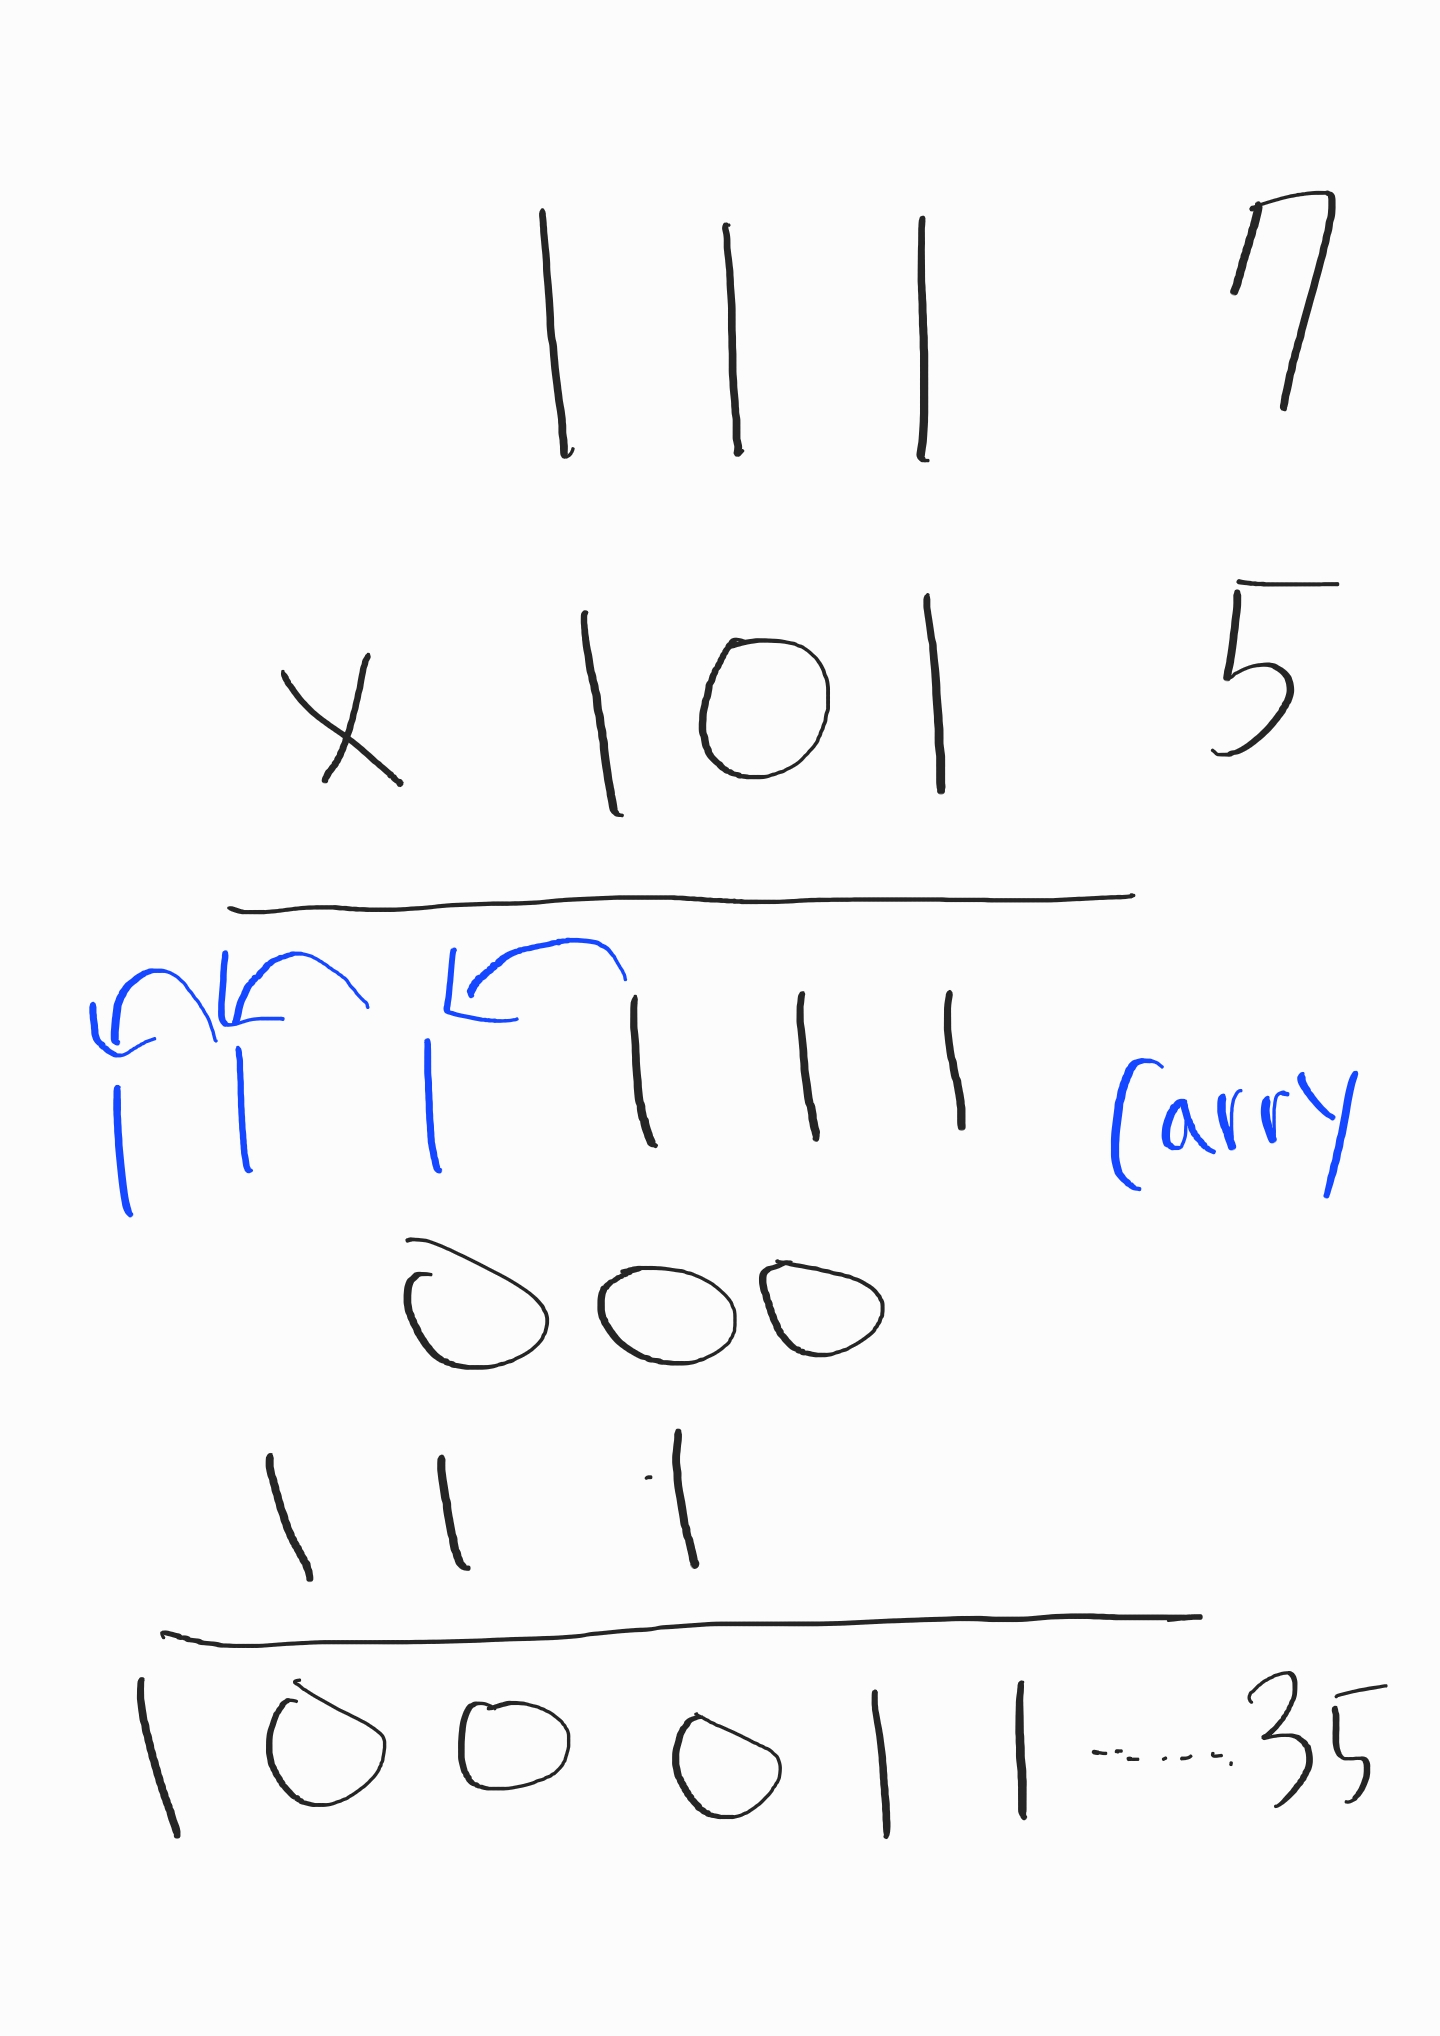 111 7
x 101 5
111111 Carry
000
111
100011 ...... 35